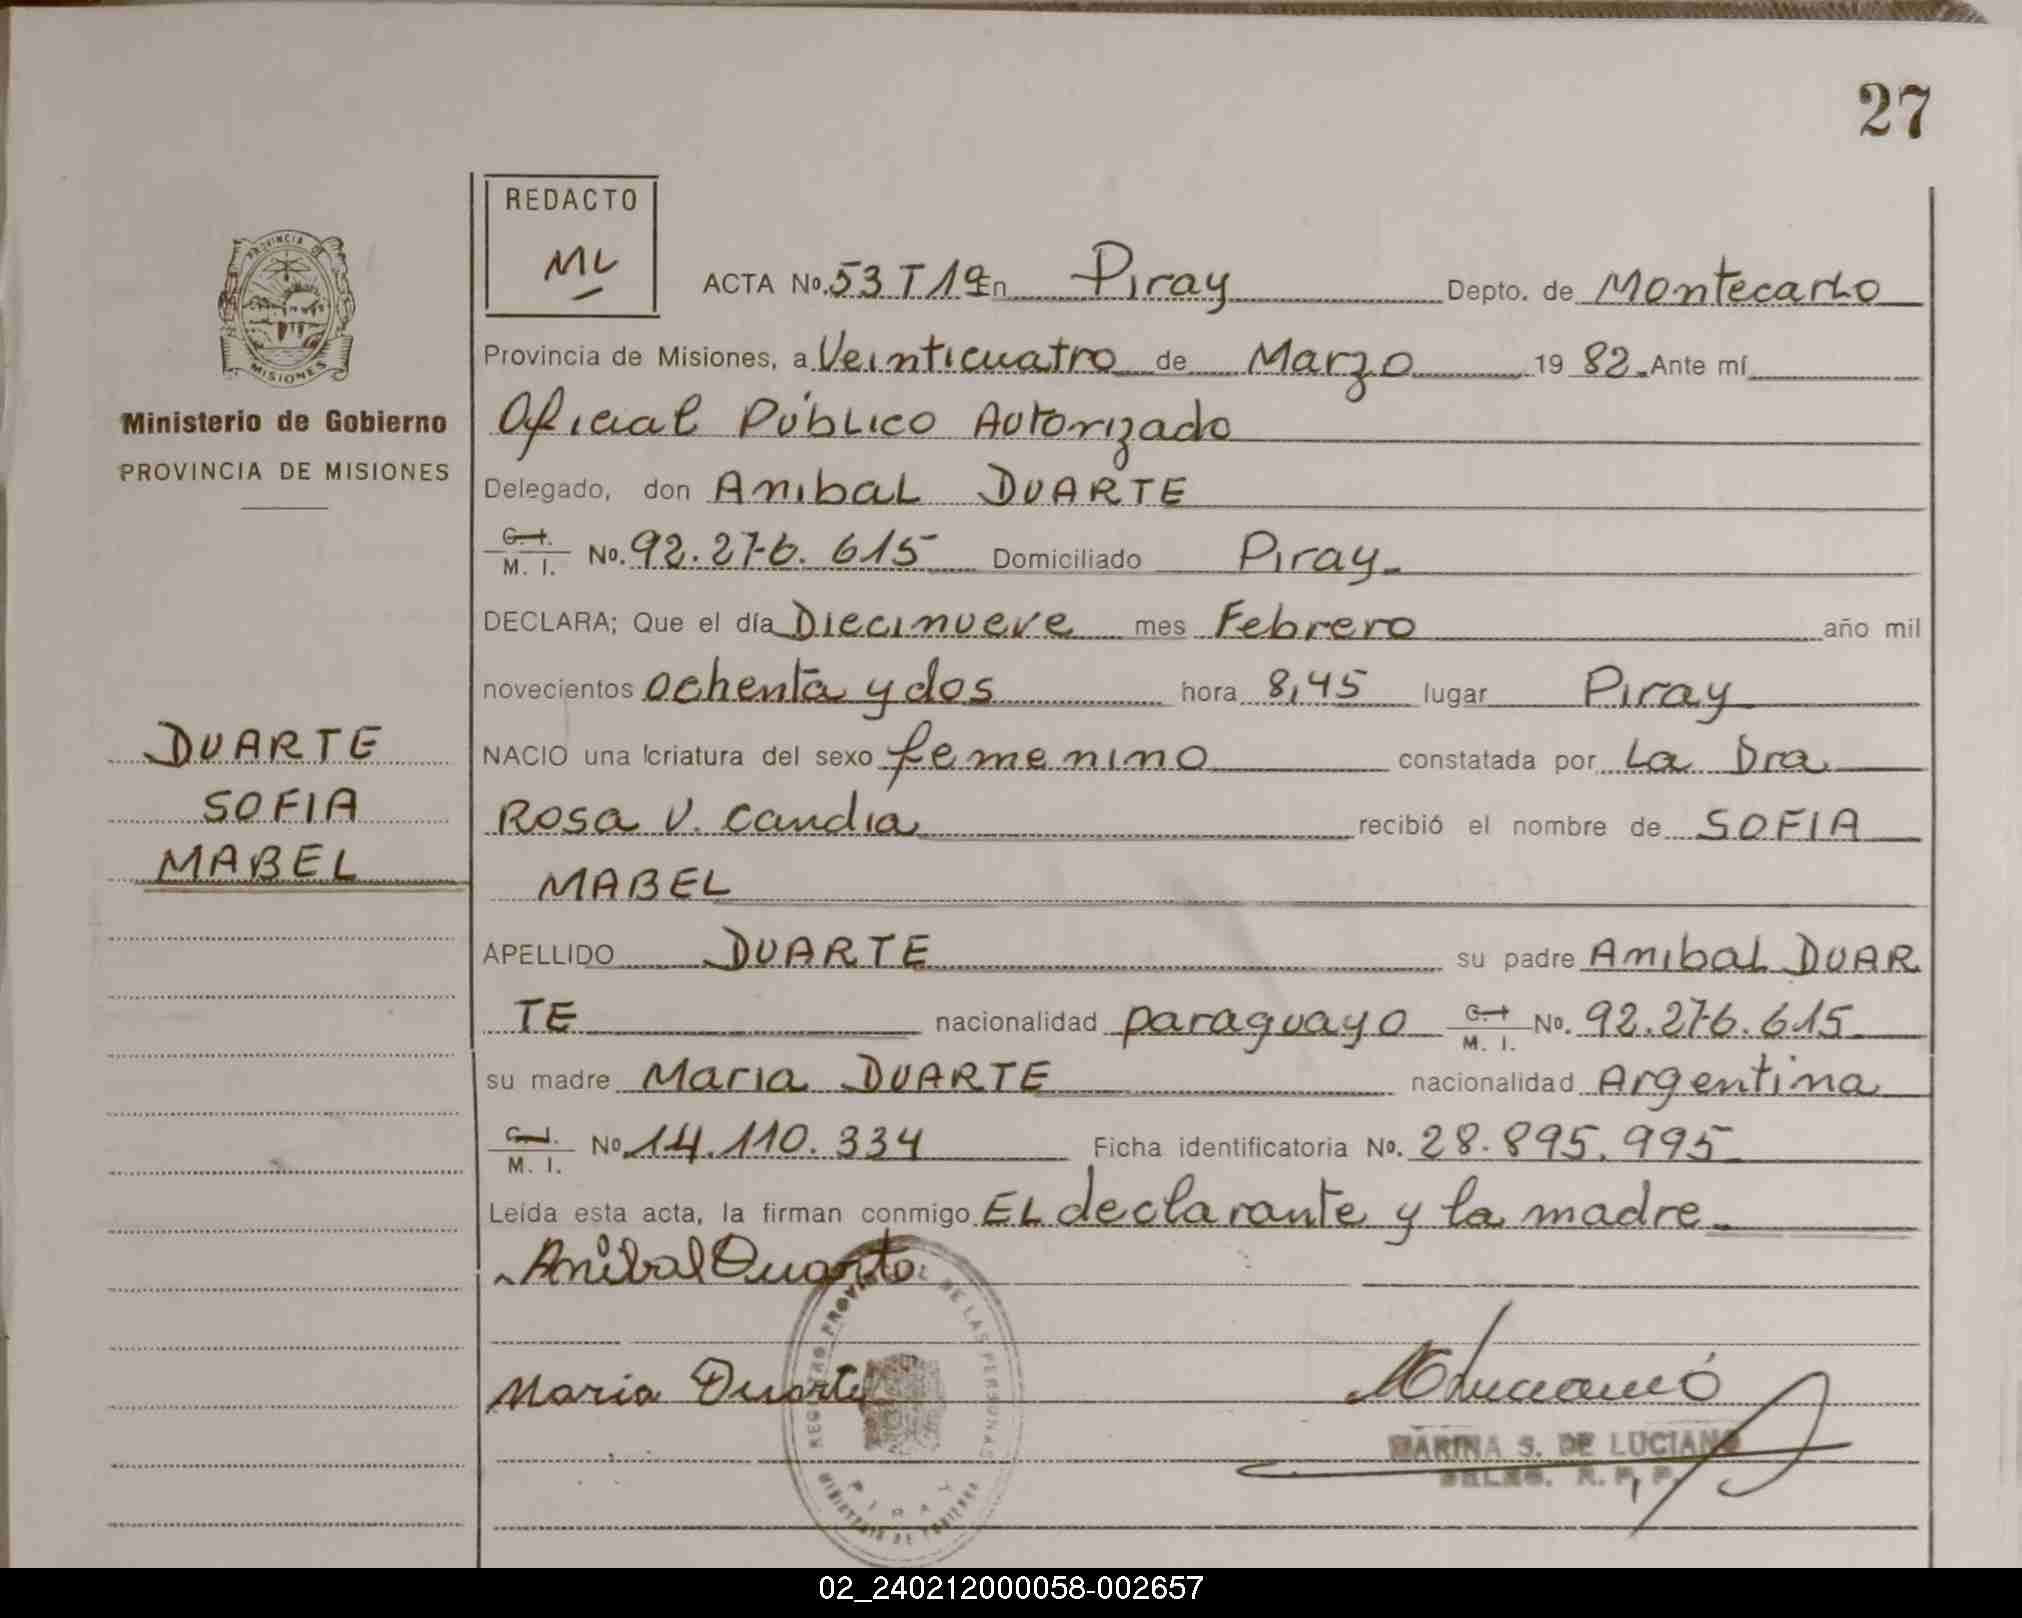 27
REDACTO
ML
ACTA No. 53 T 1º En Piray Depto. de Montecarlo
Provincia de Misiones, a Veinticuatro de Marzo 19 82. Ante mí
Oficial Público Autorizado
Delegado, don Anibal DUARTE
C. I. M. I. No. 92.276.615 Domiciliado Piray
DECLARA; Que el día Diecinueve mes Febrero año mil
novecientos ochenta y dos hora 8,45 lugar Piray
NACIO una criatura del sexo femenino constatada por La Dra
Rosa V. Candia recibió el nombre de SOFIA
MABEL
APELLIDO DUARTE su padre Anibal DUAR
TE nacionalidad paraguayo C. I. M. I. No. 92.276.615
su madre Maria DUARTE nacionalidad Argentina
C. I. M. I. No 14.110.334 Ficha identificatoria No. 28.895.995
Leída esta acta, la firman conmigo EL declarante y la madre
Anibal Duarte
Maria Duarte
MARINA S. DE LUCIANO
DELEG. R. P. P.
REGISTRO PROVINCIAL DE LAS PERSONAS
PIRAY
MINISTERIO DE GOBIERNO
PROVINCIA DE
MISIONES
Ministerio de Gobierno
PROVINCIA DE MISIONES
DUARTE
SOFIA
MABEL
02_240212000058-002657